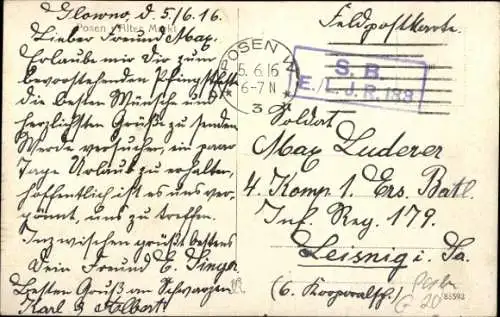 Glowno, d. 5./6.16.
Posen Alter Markt
Lieber Freund Max,
Erlaube mir Dir zum
bevorstehenden Pfingstfeste
die besten Wünsche und
herzlichsten Grüße zu senden
Werde versuchen, ein paar
Tage Urlaub zu erhalten,
hoffentlich ist es uns ver-
gönnt, uns zu treffen.
Inzwischen grüßt bestens
Dein Freund E. Singer
Besten Gruß an Schwarzen
Karl & Albert
Feldpostkarte.
POSEN 4
5.6.16
6-7 N
* 3 *
S. B.
E./L.J.R.133.
Soldat
Max Luderer
4. Komp 1. Ers. Batl.
Inf. Reg. 179.
Leisnig i. Sa.
(6. Kooperalsch.)
20
85593